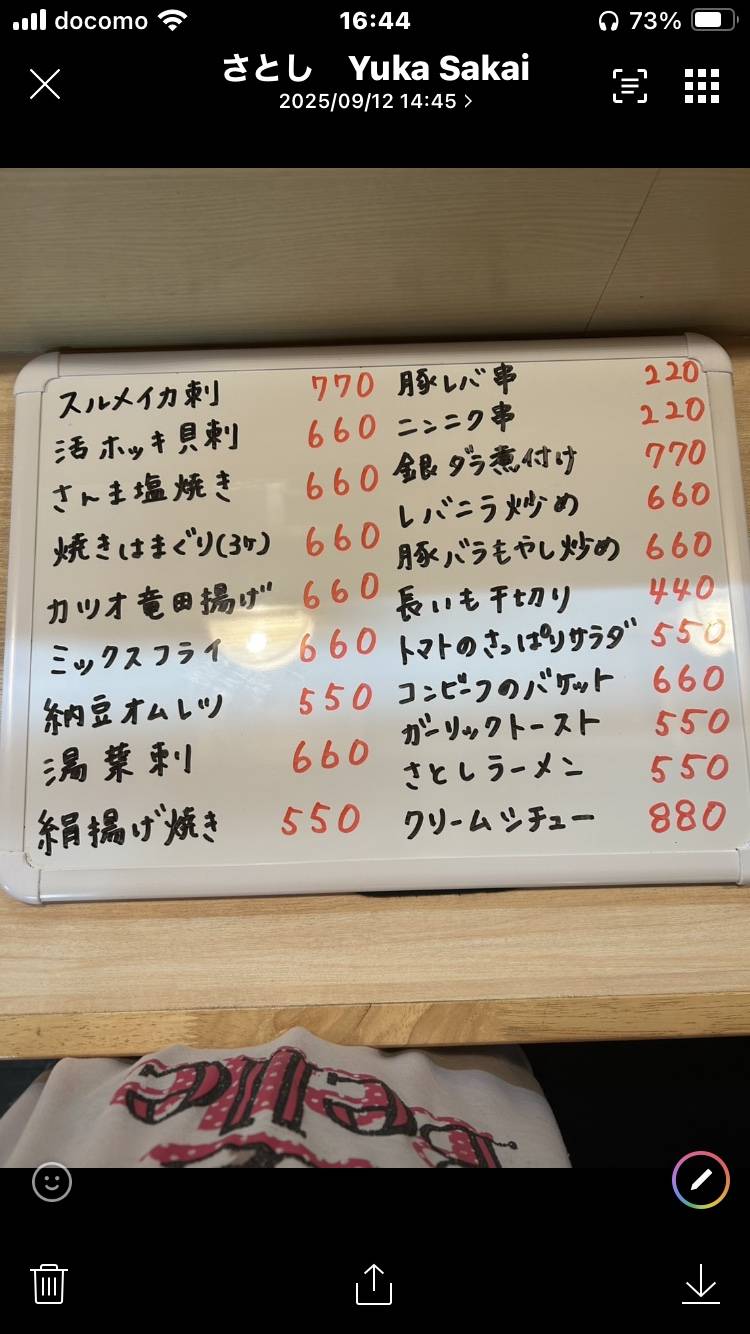 docomo 16:44 73%
さとし Yuka Sakai
2025/09/12 14:45 >
スルメイカ刺 770
活ホッキ貝刺 660
さんま塩焼き 660
焼きはまぐり(3ヶ) 660
カツオ竜田揚げ 660
ミックスフライ 660
納豆オムレツ 550
湯葉刺 660
絹揚げ焼き 550
豚レバ串 220
ニンニク串 220
銀ダラ煮付け 770
レバニラ炒め 660
豚バラもやし炒め 660
長いも千切り 440
トマトのさっぱりサラダ 550
コンビーフのバケット 660
ガーリックトースト 550
さとしラーメン 550
クリームシチュー 880